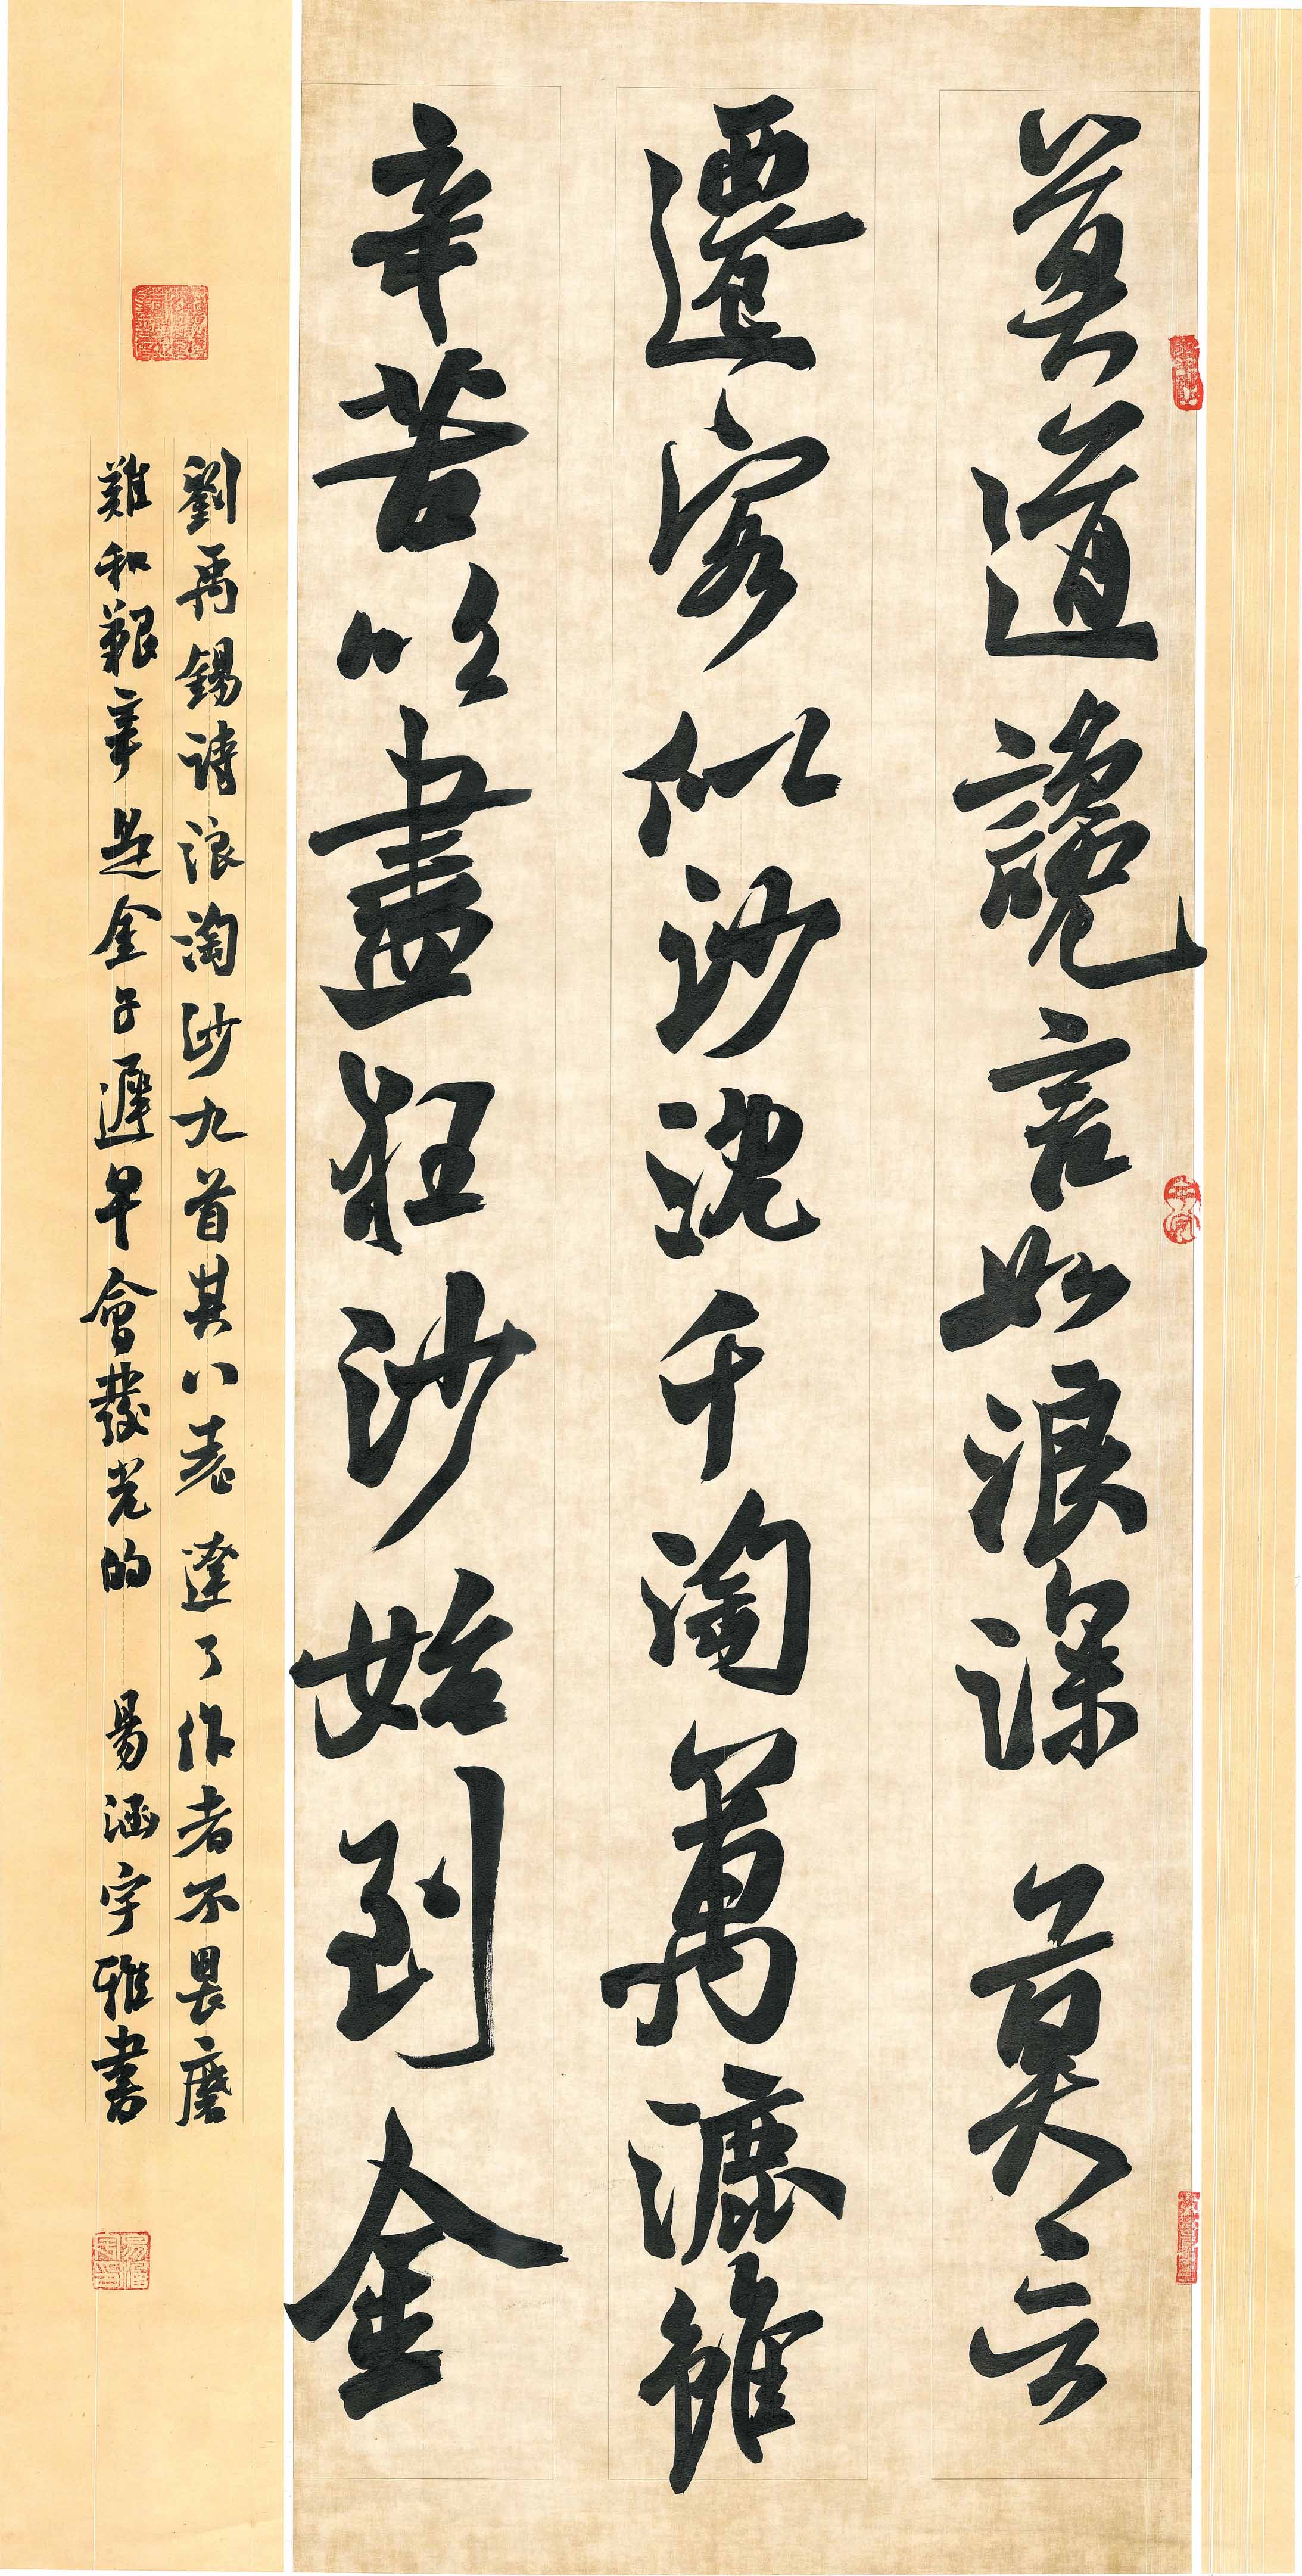 莫道讒言如浪深 莫言
遷客似沙沈千淘萬漉雖
辛苦吹盡狂沙始到金
劉禹錫詩浪淘沙九首其八表達了作者不畏磨
難和艱辛是金子遲早會發光的 易涵宇雅書
平安
易涵宇印